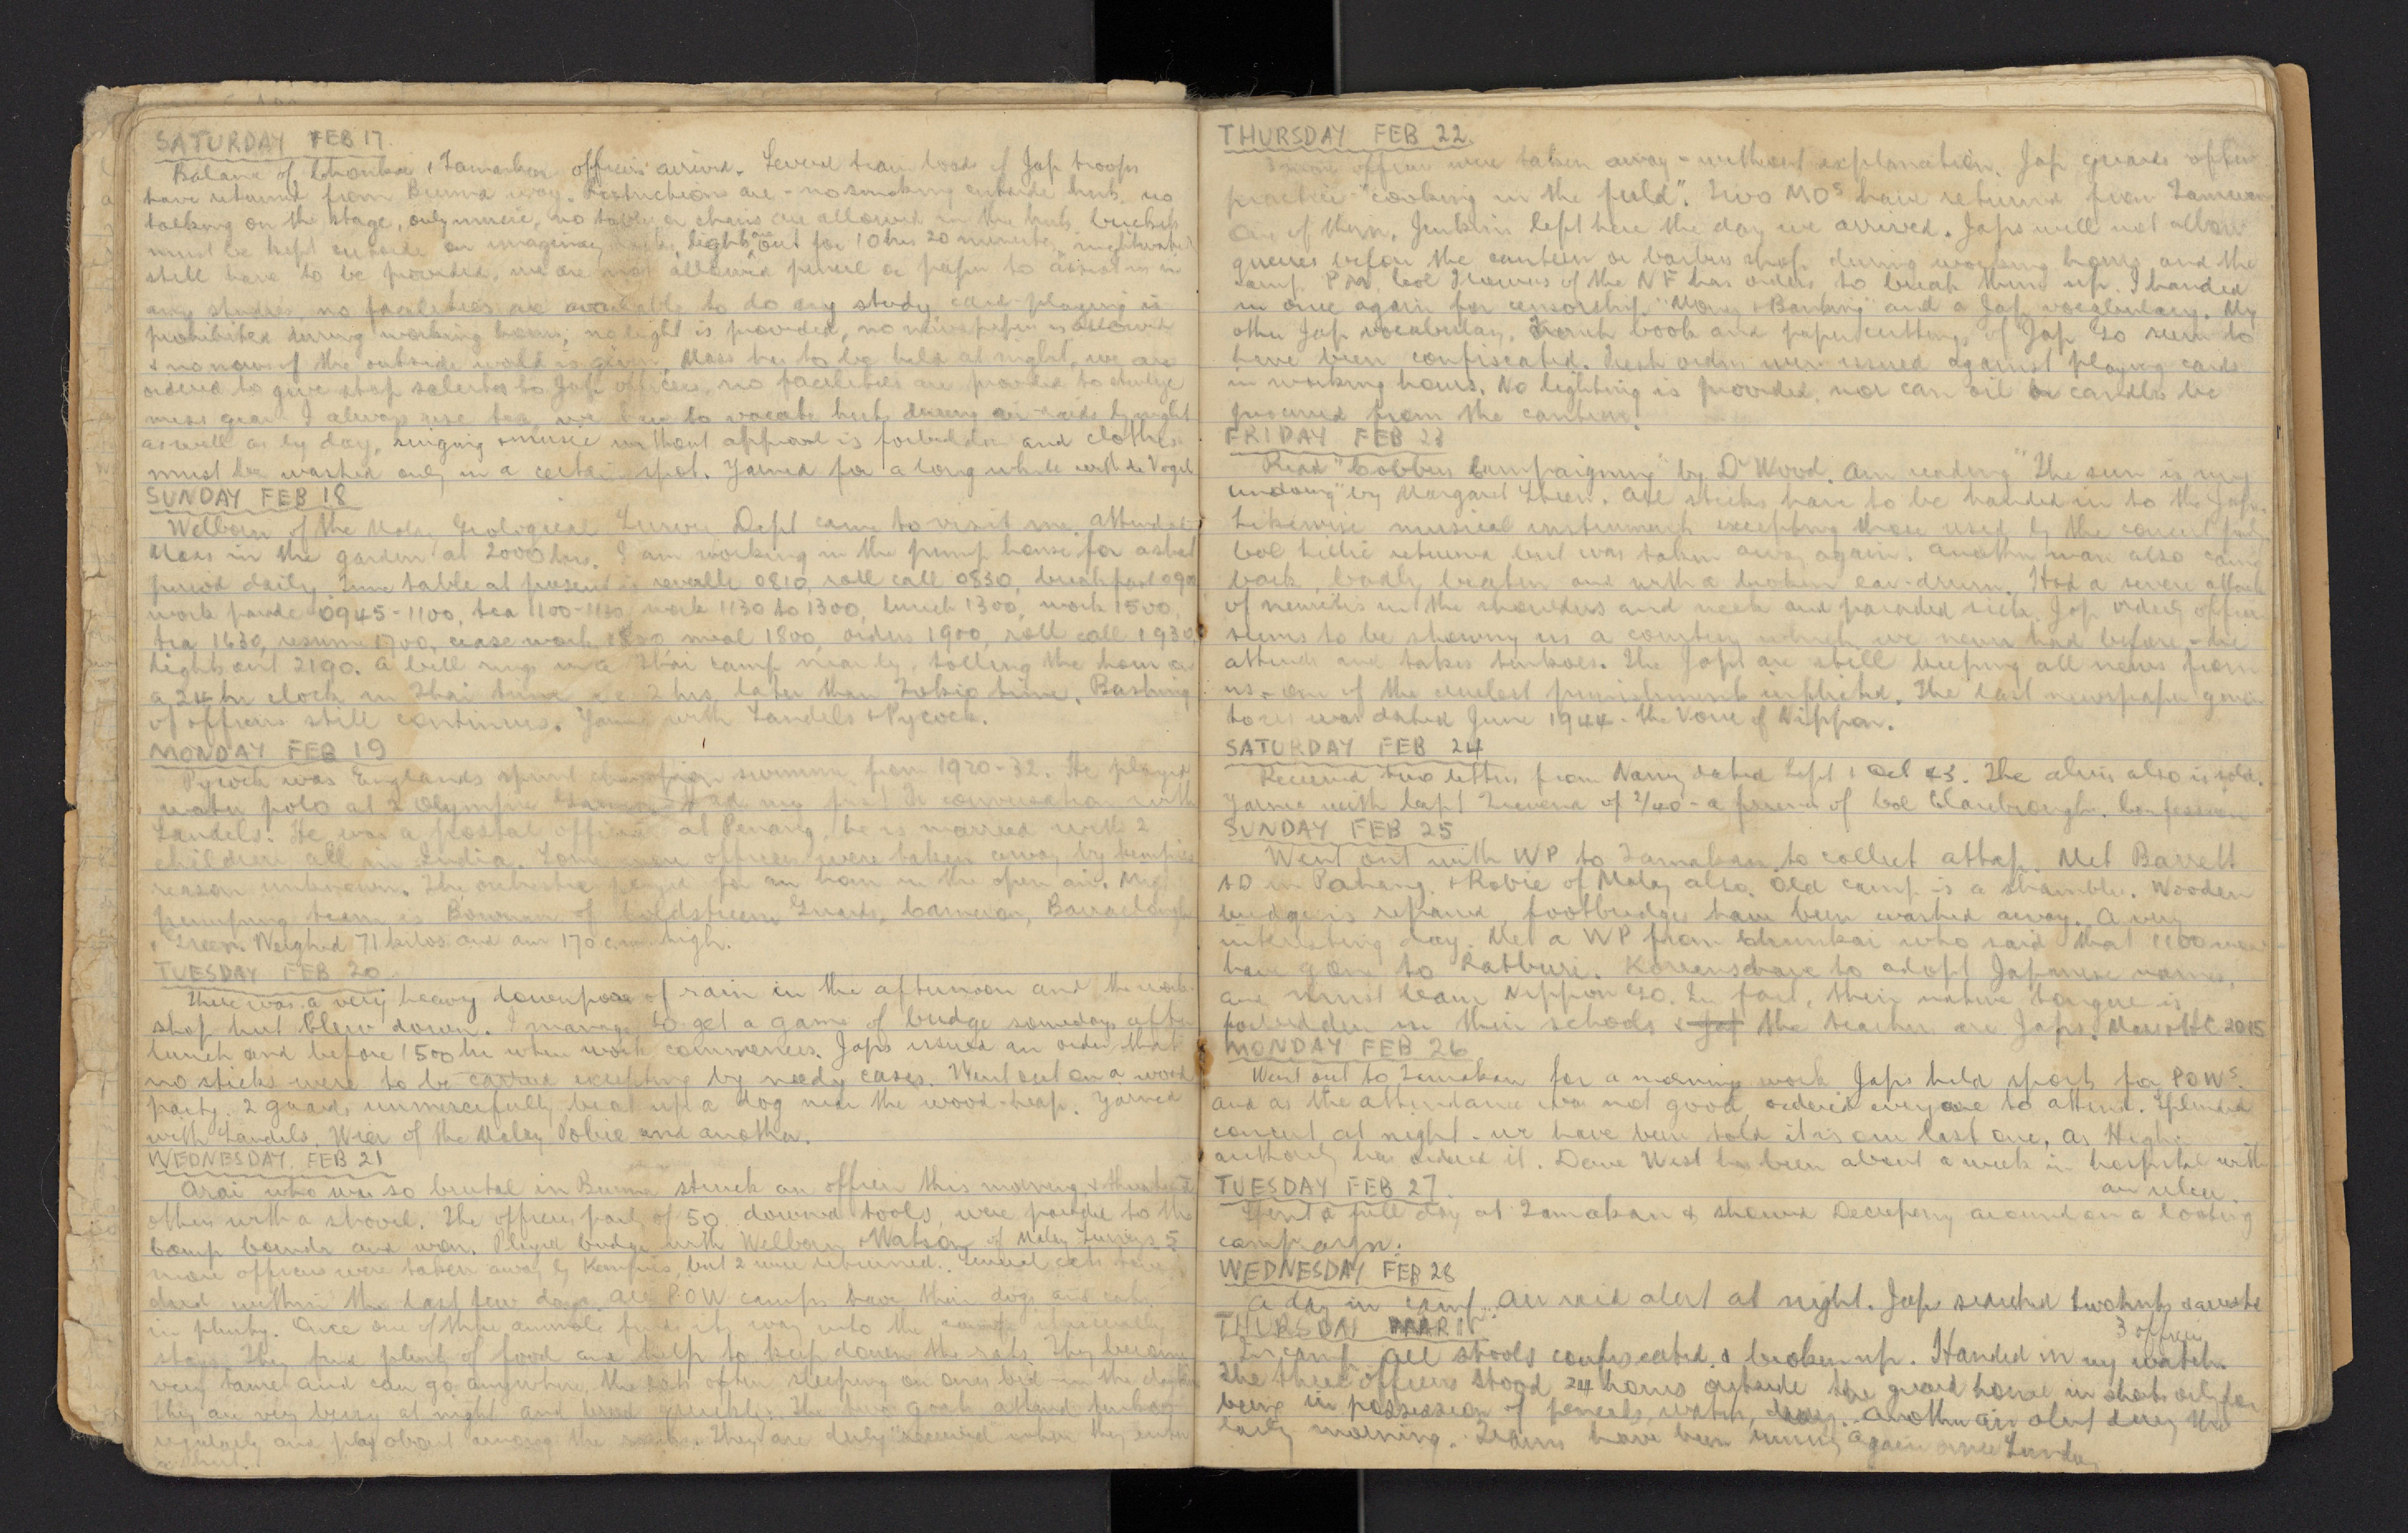 SATURDAY FEB 17.
Balance of Chunkai & Tamarkan officers arrived. Several train loads of Jap troops
have returned from Burma way. Restrictions are - no smoking outside huts, no
talking on the stage, only music, no tables or chairs are allowed in the huts, buckets
must be kept outside an imaginary lights out for 10 hrs 20 minutes, nightwatches
still have to be provided, we are not allowed pencil or paper to assist us in
any studies, no facilities are available to do any study, card-playing is
prohibited during working hours, no light is provided, no newspaper is allowed
& no news of the outside world is given, Mass has to be held at night, we are
ordered to give stop salutes to Jap officers, no facilities are provided to
mess gear I always use tea, we have to vacate huts during air-raids by night
as well as by day, singing & music without approval is forbidden and clothes
must be washed only in a certain spot. Yarned for a long while with de Vogel
SUNDAY FEB 18
Welbourn of the Malay Geological Survey Dept came to visit me. Attended
Mass in the garden at 2000 hrs. I am working in the pump house for a short
period daily. Time table at present is reveille 0810, roll call 0830, breakfast 0900
work parade 0945-1100, tea 1100-1130, work 1130 to 1300, lunch 1300, work 1500,
tea 1630, resume 1700, cease work 1830, meal 1800, orders 1900, roll call 1930,
lights out 2190. A bell rings in a Thai camp nearby, tolling the hour on
a 24 hr clock in Thai time i.e. 2 hrs later than Tokio time. Bashing
of officers still continues. Yarned with Landels & Pycock.
MONDAY FEB 19
Pycock was Englands sprint champion swimmer from 1920-32. He played
water polo at 2 Olympic Games. Had my first Fr conversation with
Landels. He was a postal officer at Penang, he is married with 2
children all in India. Some more officers were taken away by kempies
reason unknown. The orchestra played for an hour in the open air. My
pumping team is Bowman of Coldstream Guards, Cameron, Barraclough
& Green. Weighed 71 kilos and am 170 c.m. high.
TUESDAY FEB 20
There was a very heavy downpour of rain in the afternoon and the work-
shop hut blew down. I manage to get a game of bridge somedays after
lunch and before 1500 hr when work commences. Japs issued an order that
no sticks were to be carried excepting by needy cases. Went out on a wood
party. 2 guards unmercifully beat up a dog near the wood-heap. Yarned
with Landels, Wier of the Malay Police and another.
WEDNESDAY FEB 21
Arai who was so brutal in Burma struck an officer this morning, & threatened
others with a shovel. The officers party of 50 downed tools, were paraded to the
Camp bounds and won. Played bridge with Welbourn & Watson of Malay Surveys. 5
more officers were taken away by Kempies, but 2 were returned. Several cats have
died within the last few days. All P.O.W. camps have their dogs and cats
in plenty. Once one of these animals finds its way into the camp it usually
stays. They find plenty of food and help to keep down the rats. They become
very tame and can go anywhere, the cats often sleeping on ones bed in the daytime
they are very busy at night and breed quickly. The two goats attend tenkos
regularly and play about among the ranks. They are duly received when they enter
a hut.
THURSDAY FEB 22.
3 more officers were taken away - without explanation. Jap guards often
practice "cooking in the field". Two MOs have returned from Tamuan
One of them, Jenkins left here the day we arrived. Japs will not allow
queues before the canteen or barbers shop during working hours and the
camp PM, Col Flowers of the NF has orders to break them up. I handed
in once again for censorship "Money & Banking" and a Jap vocabulary. My
other Jap vocabulary, French book and paper cuttings of Jap Go seem to
have been confiscated. Fresh orders were issued against playing cards
in working hours. No lighting is provided, nor can oil or candles be
procured from the canteen.
FRIDAY FEB 23
Read "Cobbers Campaigning" by Dr Wood. Am reading "The sun is my
undoing" by Margaret Steen. All sticks have to be handed in to the Japs.
Likewise musical instruments excepting those used by the concert party.
Col Lillie returned but was taken away again. Another man also came
back, badly beaten and with a broken ear-drum. Had a severe attack
of neuritis in the shoulders and neck and paraded sick. Jap orderly officer
seems to be showing us a courtesy which we never had before - he
attends and takes tenkoes. The Japs are still keeping all news from
us, one of the cruelest punishments inflicted. The last newspaper given
to us was dated June 1944 - the Voice of Nippon.
SATURDAY FEB 24
Received two letters from Nancy dated Sept & Oct 43. The alvis also is sold.
Yarned with Capt Truscott of 2/40 - a friend of Col Clarebrough. Confession
SUNDAY FEB 25
Went out with WP to Tamakan to collect attap. Met Barrett
AD in Pahang. & Robie of Malay also. Old camp is a shambles. Wooden
bridge is repaired, footbridges have been washed away. A very
interesting day. Met a WP from Chunkai who said that 1100 men
have gone to Ratburi. Koreans have to adopt Japanese names,
and must learn Nippon Go. In fact, their native tongue is
forbidden in their schools & Jap the teachers are Japs. Mass & HC 2015
MONDAY FEB 26
Went out to Tamakan for a mornings work. Japs held sports for POWs.
and as the attendance was not good, ordered everyone to attend. Splendid
concert at night - we have been told it is our last one, as Higher
authority has ordered it. Dave West has been about a week in hospital with
an ulcer.
TUESDAY FEB 27.
Spent a full day at Tamakan & shewed around on a looting
campaign.
WEDNESDAY FEB 28
A day in camp. Air raid alert at night. Jap searched two huts & arrested
3 officers
THURSDAY MAR 1
In camp. All stools confiscated & broken up. Handed in my watch.
The three officers stood 24 hours outside the guard house in shorts only for
being in possession of pencils, watch, diary. Another air alert during the
early morning. Trains have been running again since Sunday